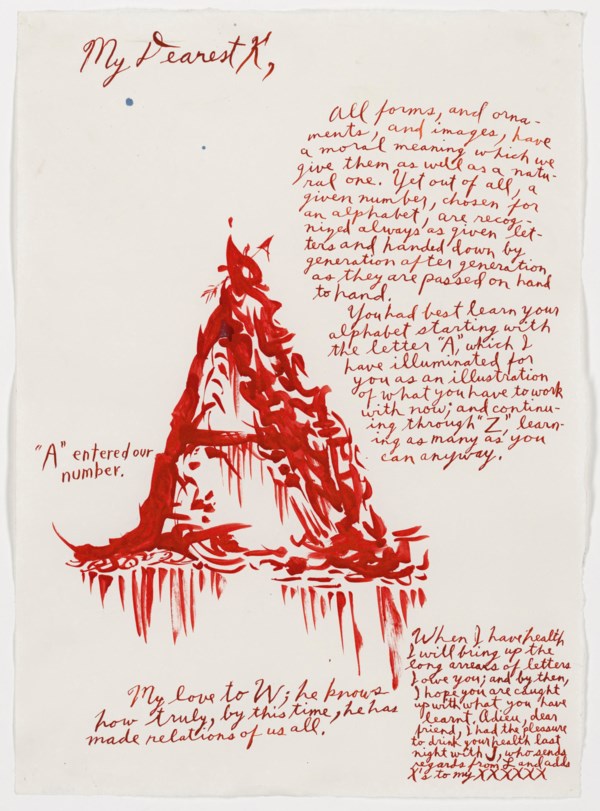 My Dearest X,
All forms, and orna-
ments, and images, have
a moral meaning which we
give them as well as a natu-
ral one. Yet out of all, a
given number, chosen for
an alphabet, are recog-
nized always as given let-
ters and handed down by
generation after generation
as they are passed on hand
to hand.
You had best learn your
alphabet starting with
the letter "A," which I
have illuminated for
you as an illustration
of what you have to work
with now; and continu-
ing through "Z," learn-
ing as many as you
can anyway.
"A" entered our
number.
When I have health
I will bring up the
long arrears of letters
I owe you; and by then,
I hope you are caught
up with what you have
learnt. Adieu, dear
friend, I had the pleasure
to drink your health last
night with J, who sends
regards from L and adds
X's to my XXXXXX
My love to W; he knows
how truly, by this time, he has
made relations of us all.